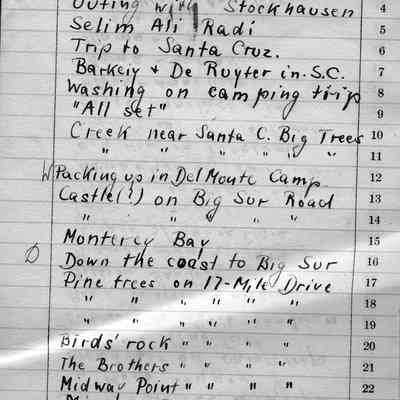 Outing with Stockhausen 4
Selim Ali Radi 5
Trip to Santa Cruz. 6
Barkeiy & De Ruyter in S.C. 7
Washing on camping trip 8
"All set" 9
Creek near Santa C. Big Trees 10
" " " " " " 11
W Packing up in Del Monte Camp 12
Castle(!) on Big Sur Road 13
" " " " 14
Monterey Bay 15
D Down the coast to Big Sur 16
Pine trees on 17-Mile Drive 17
" " " " " 18
" " " " " 19
Birds' rock " " " 20
The Brothers " " " 21
Midway Point " " " " 22